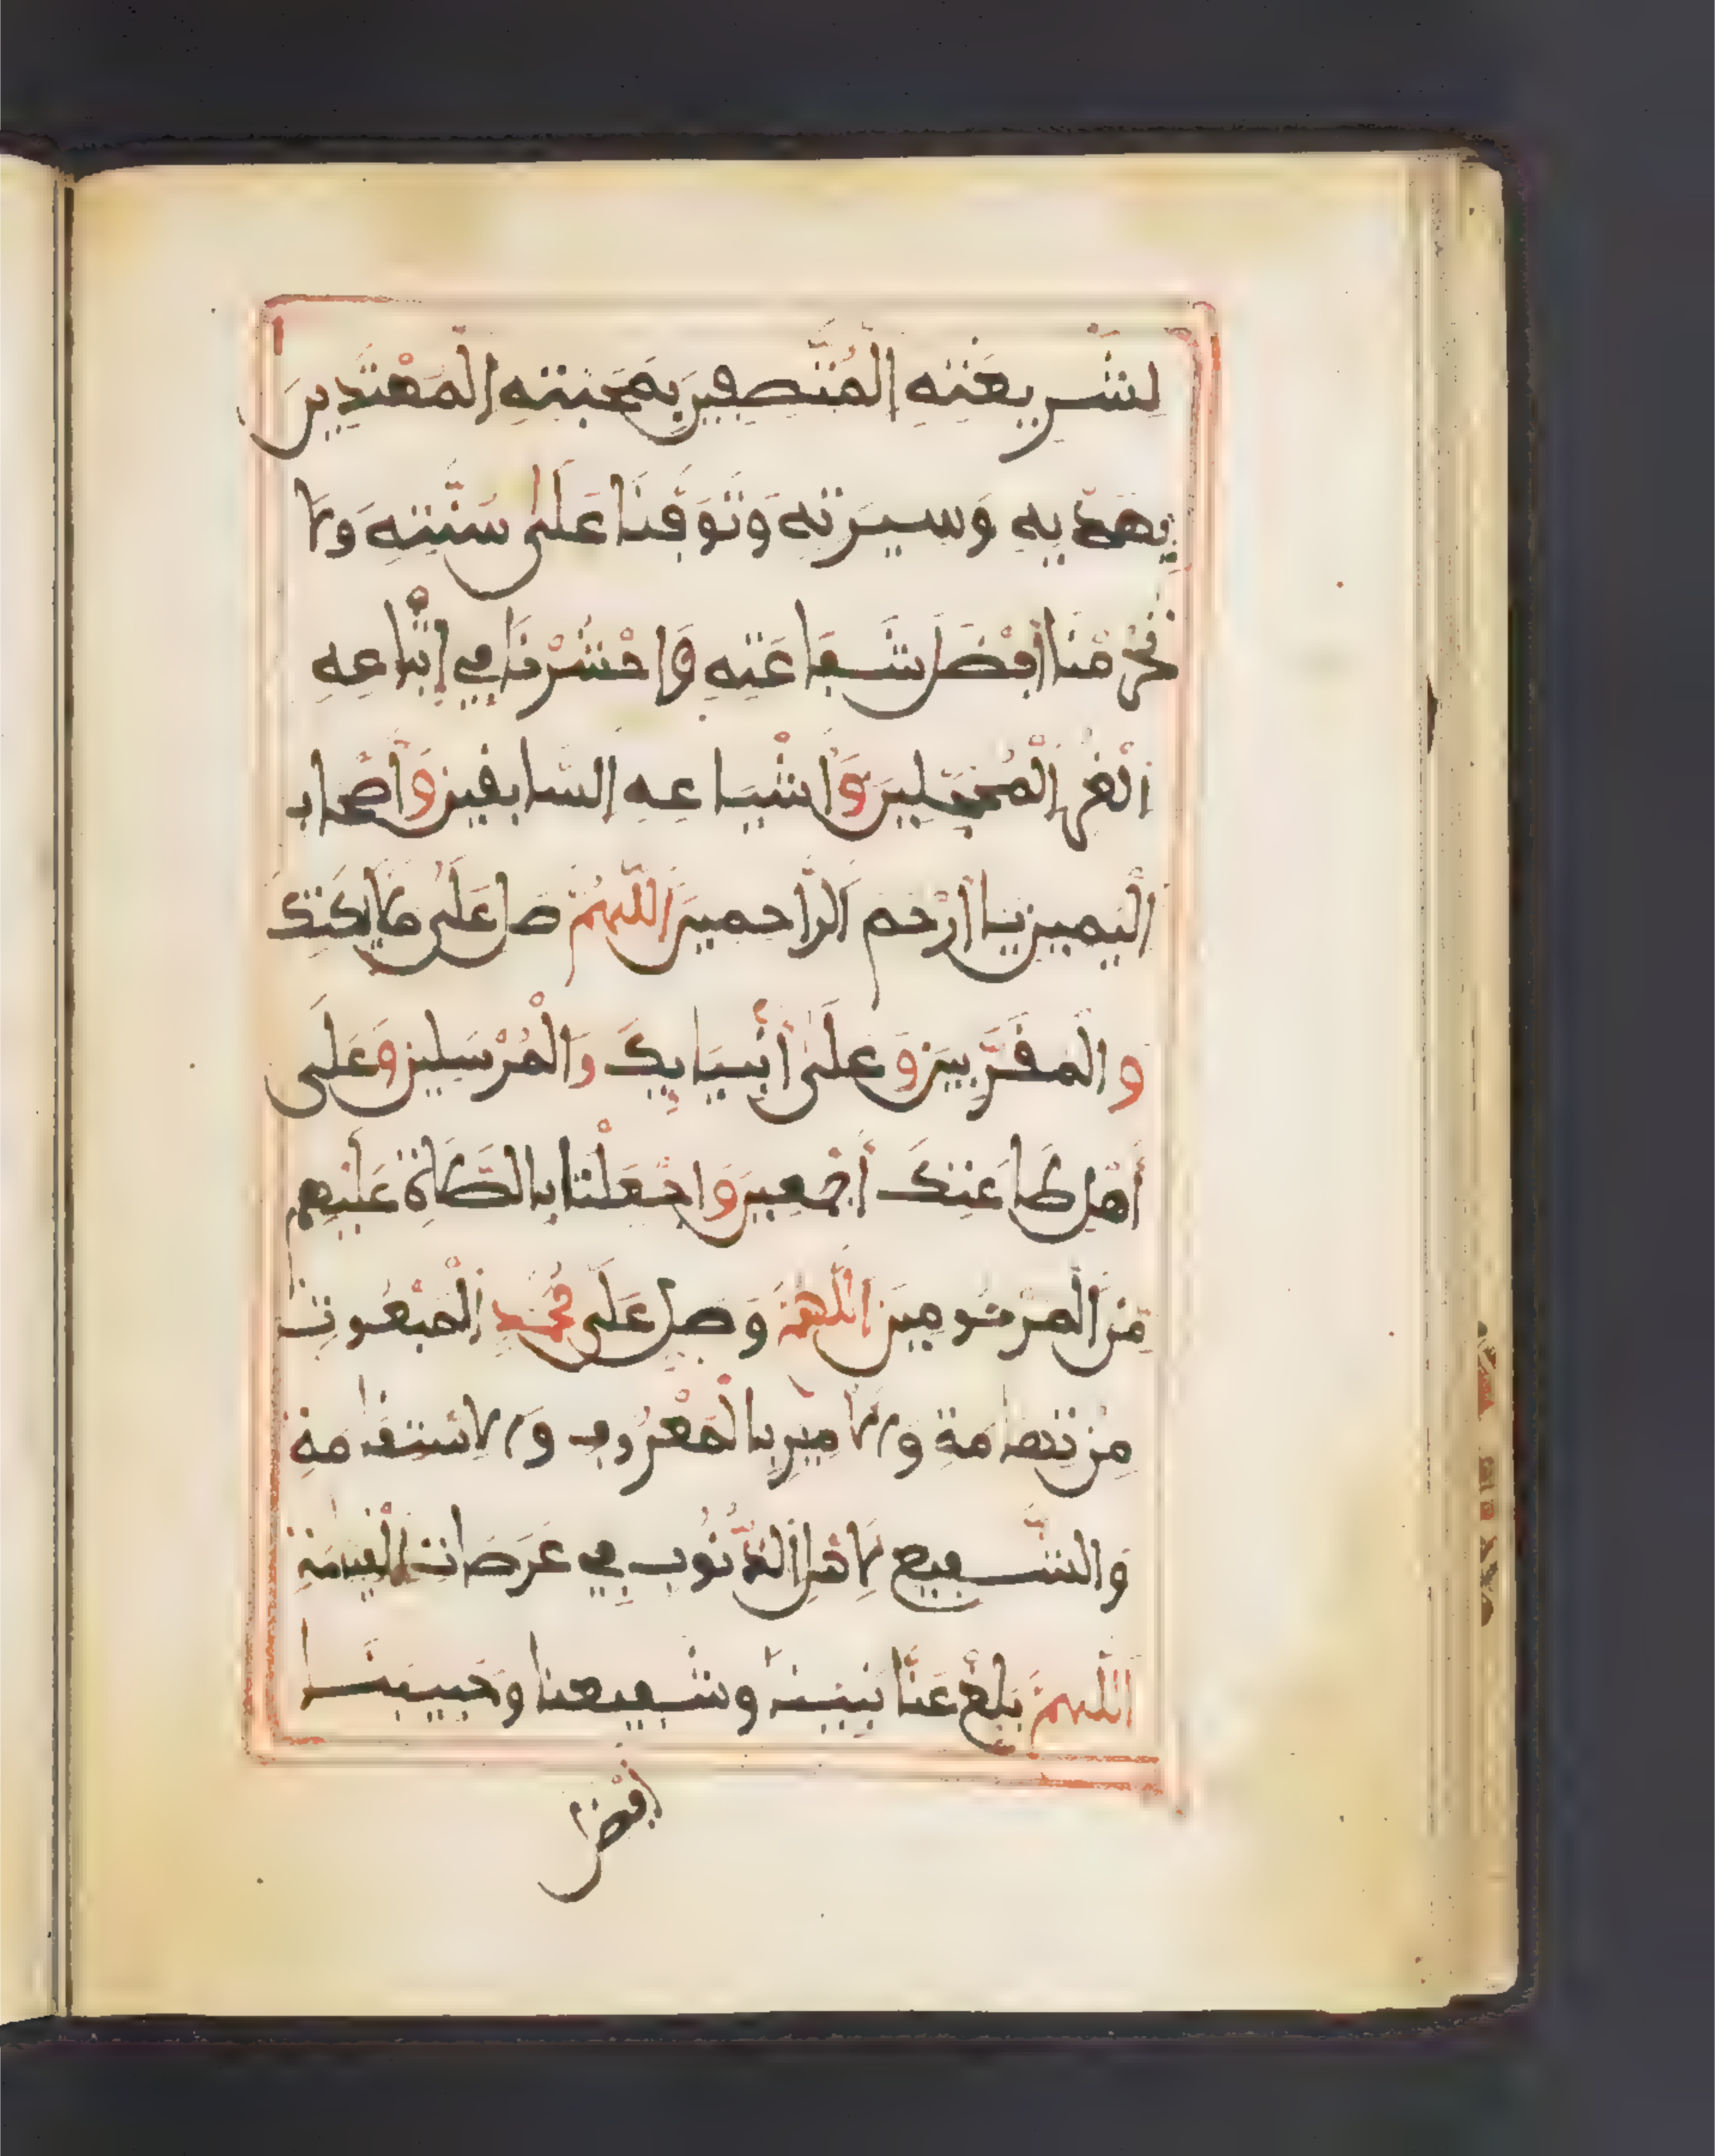 لِشَّرِيعَتِهِ الْمُتَّصِفِينَ بِمَحَبَّتِهِ الْمُهْتَدِينَ
بِهَدْيِهِ وَسِيرَتِهِ وَتَوَفَّنَا عَلَى سُنَّتِهِ وَلَا
تَحْرِمْنَا فَضْلَ شَفَاعَتِهِ وَاحْشُرْنَا فِي اتِّبَاعِهِ
الْغُرِّ الْمُحَجَّلِينَ وَأَشْيَاعِهِ السَّابِقِينَ وَأَصْحَابِ
الْيَمِينِ يَا أَرْحَمَ الرَّاحِمِينَ اللَّهُمَّ صَلِّ عَلَى مَلَائِكَتِكَ
وَالْمُقَرَّبِينَ وَعَلَى أَنْبِيَائِكَ وَالْمُرْسَلِينَ وَعَلَى
أَهْلِ طَاعَتِكَ أَجْمَعِينَ وَاجْعَلْنَا بِالصَّلَاةِ عَلَيْهِمْ
مِنَ الْمَرْحُومِينَ اللَّهُمَّ وَصَلِّ عَلَى مُحَمَّدٍ الْمَبْعُوثِ
مِنْ تِهَامَةَ وَالْآمِرِ بِالْمَعْرُوفِ وَالِاسْتِقَامَةِ
وَالشَّفِيعِ لِأَهْلِ الذُّنُوبِ فِي عَرَصَاتِ الْقِيَامَةِ
اللَّهُمَّ بَلِّغْ عَنَّا نَبِيَّنَا وَشَفِيعَنَا وَحَبِيبَنَا
أَفْضَلَ